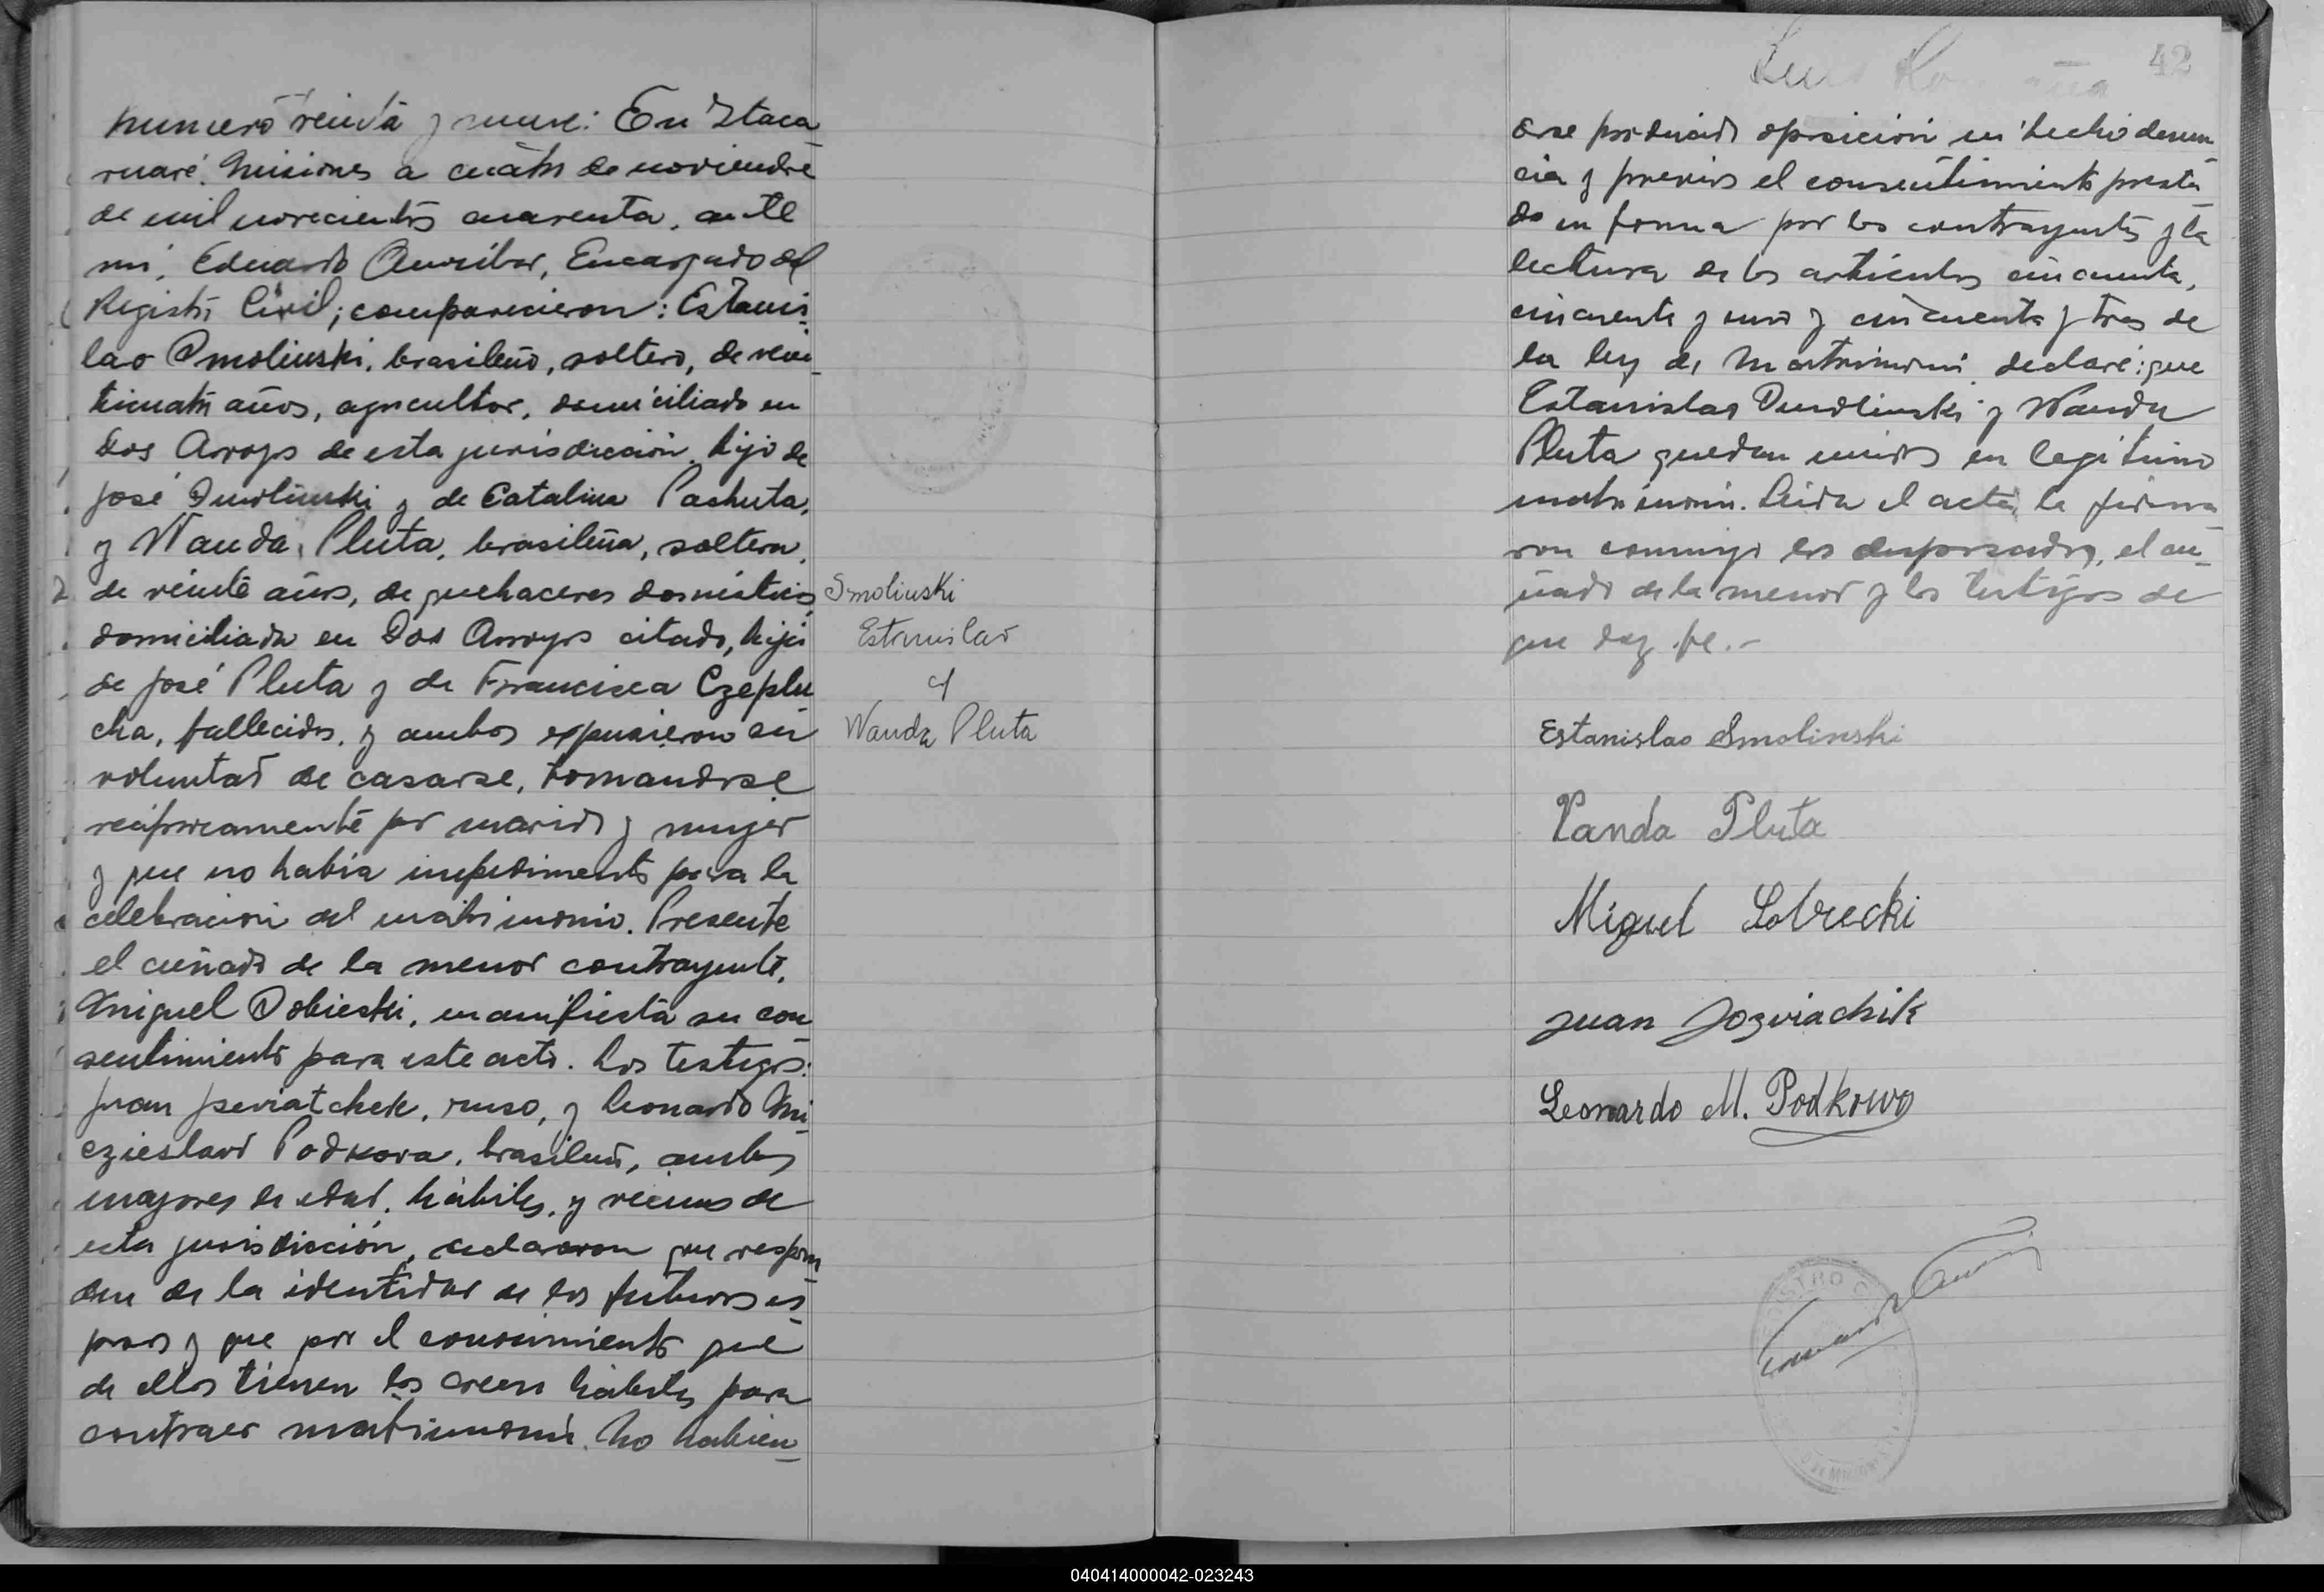 numero treinta y nueve: En Itaca
ruaré. Misiones a cuatro de noviembre
de mil novecientos cuarenta, ante
mi, Eduardo Encargado del
Registro Civil; comparecieron: Estanis-
lao Smolinski, brasileño, soltero, de vein-
ticuatro años, agricultor, domiciliado en
Dos Arroyos de esta jurisdicción, hijo de
José Smolinski y de Catalina Pachuta,
y Wanda Pluta, brasileña, soltera,
de veinte años, de quehaceres domésticos,
domiciliada en Dos Arroyos citado, hija
de José Pluta y de Francisca Czeplu-
cha, fallecidos, y ambos expusieron su
voluntad de casarse, tomandose
reciprocamente por marido y mujer
y que no habia impedimento para la
celebracion del matrimonio. Presente
el cuñado de la menor contrayente,
Miguel Sobieski, manifiesta su con
sentimiento para este acto. Los testigos:
Juan ruso, y Leonardo Mi-
czieslavo Podkova, brasileño, ambos
mayores de edad, hábiles, y vecinos de
esta jurisdicción, declararon que respon-
den de la identidad de los futuros es-
posos y que por el conocimiento que
de ellos tienen los creen habiles para
contraer matrimonio. No habien-
Smolinski
Estanislao
c/
Wanda Pluta
42
dose producido oposicion en hecho denun-
cia y previos el consentimiento presta-
do en forma por los contrayentes y la
lectura de los articulos cincuenta,
cincuenta y uno y cincuenta y tres de
la ley de Matrimonio declaré: que
Estanislao Smolinski y Wanda
Pluta quedan unidos en legitimo
matrimonio. Leida el acta, la firma-
ron conmigo los desposados, el cu-
ñado de la menor y los testigos de
que doy fe.-
Estanislao Smolinski
Vanda Pluta
Miguel Sobrecki
Juan Jozviachik
Leonardo M. Podkowa
040414000042-023243